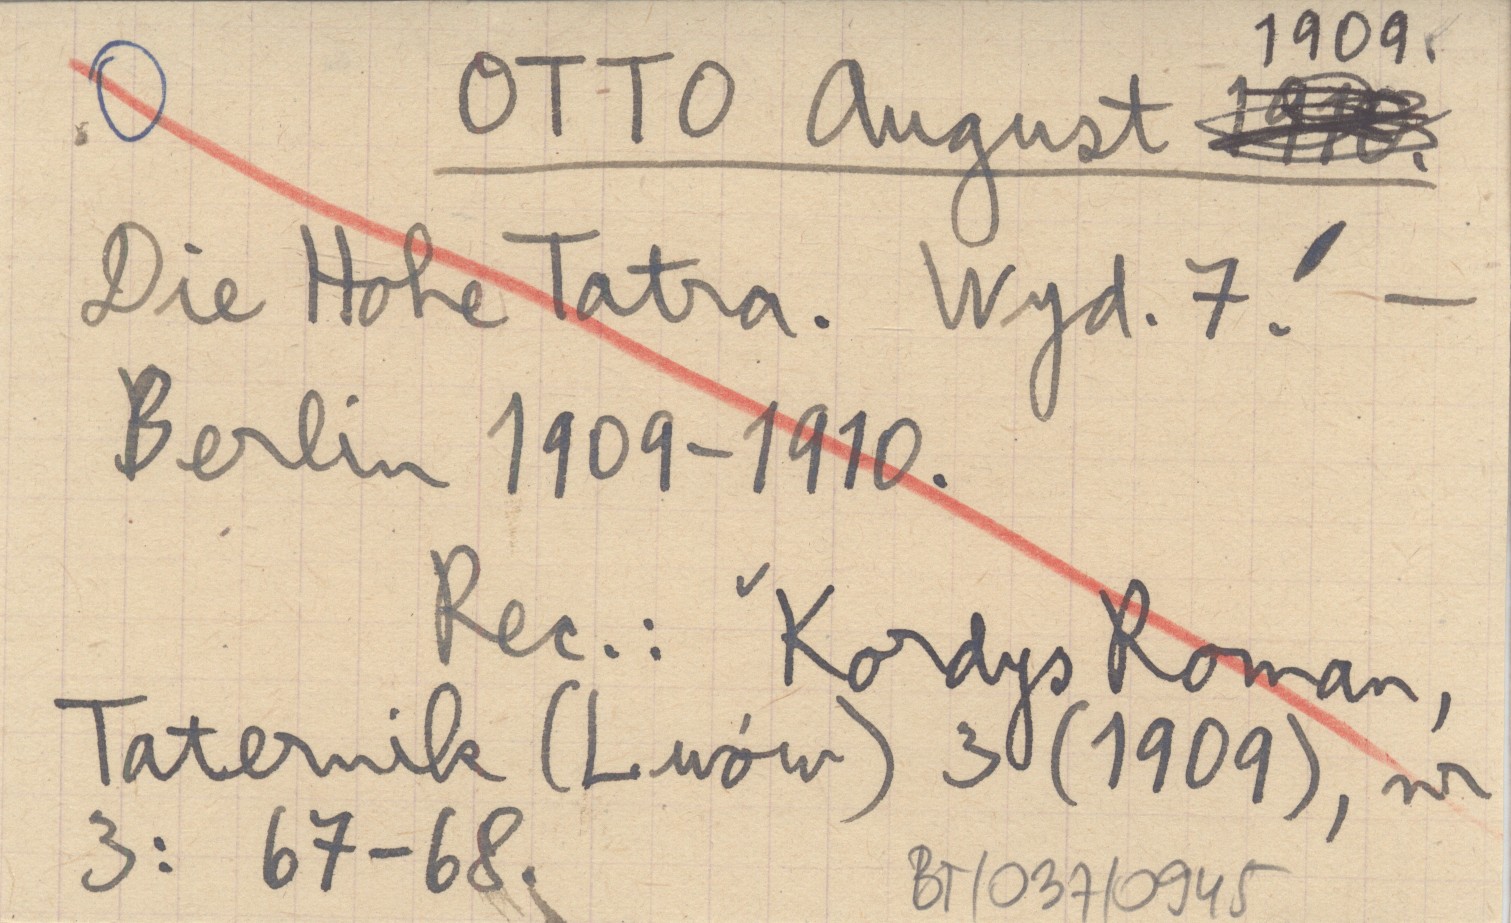 1909.
O OTTO August 1910.
Die Hohe Tatra. Wyd. 7! —
Berlin 1909-1910.
Rec.: Kordys Roman,
Taternik (Lwów) 3 (1909), nr
3: 67-68.
BT/037/0945